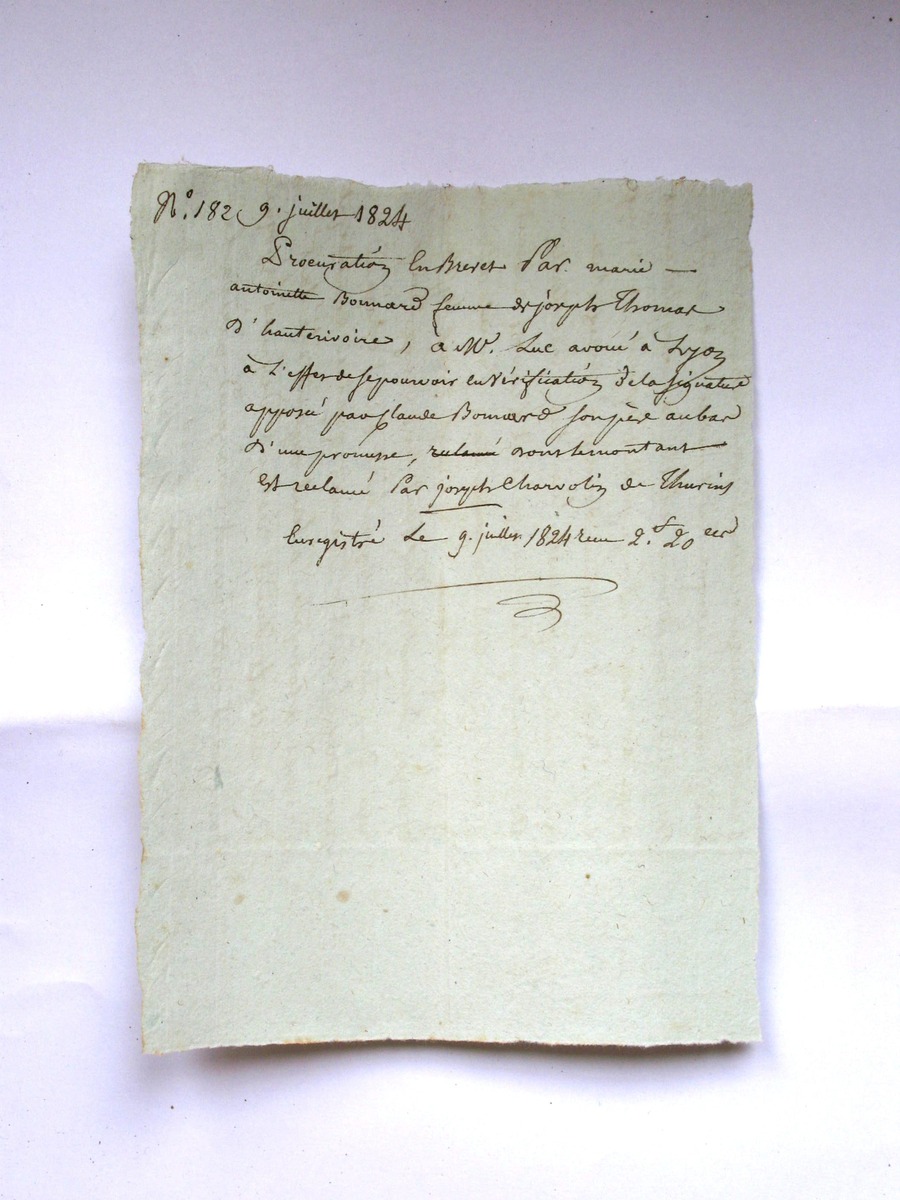 N.° 182 9. juillet 1824
Procuration en Brevet Par marie —
antoinette Bonnard femme de joseph Thomas
d'hauterivoire, à Mr. Luc avoué à Lyon
à l'effet de se pourvoir en vérification de la signature
apposé par Claude Bonnard son père au bas
d'une promesse, reclamé dont le montant
est reclamé Par joseph Charvolin de Thurins
Enregistré Le 9. juillet 1824 reçu 2.f 20